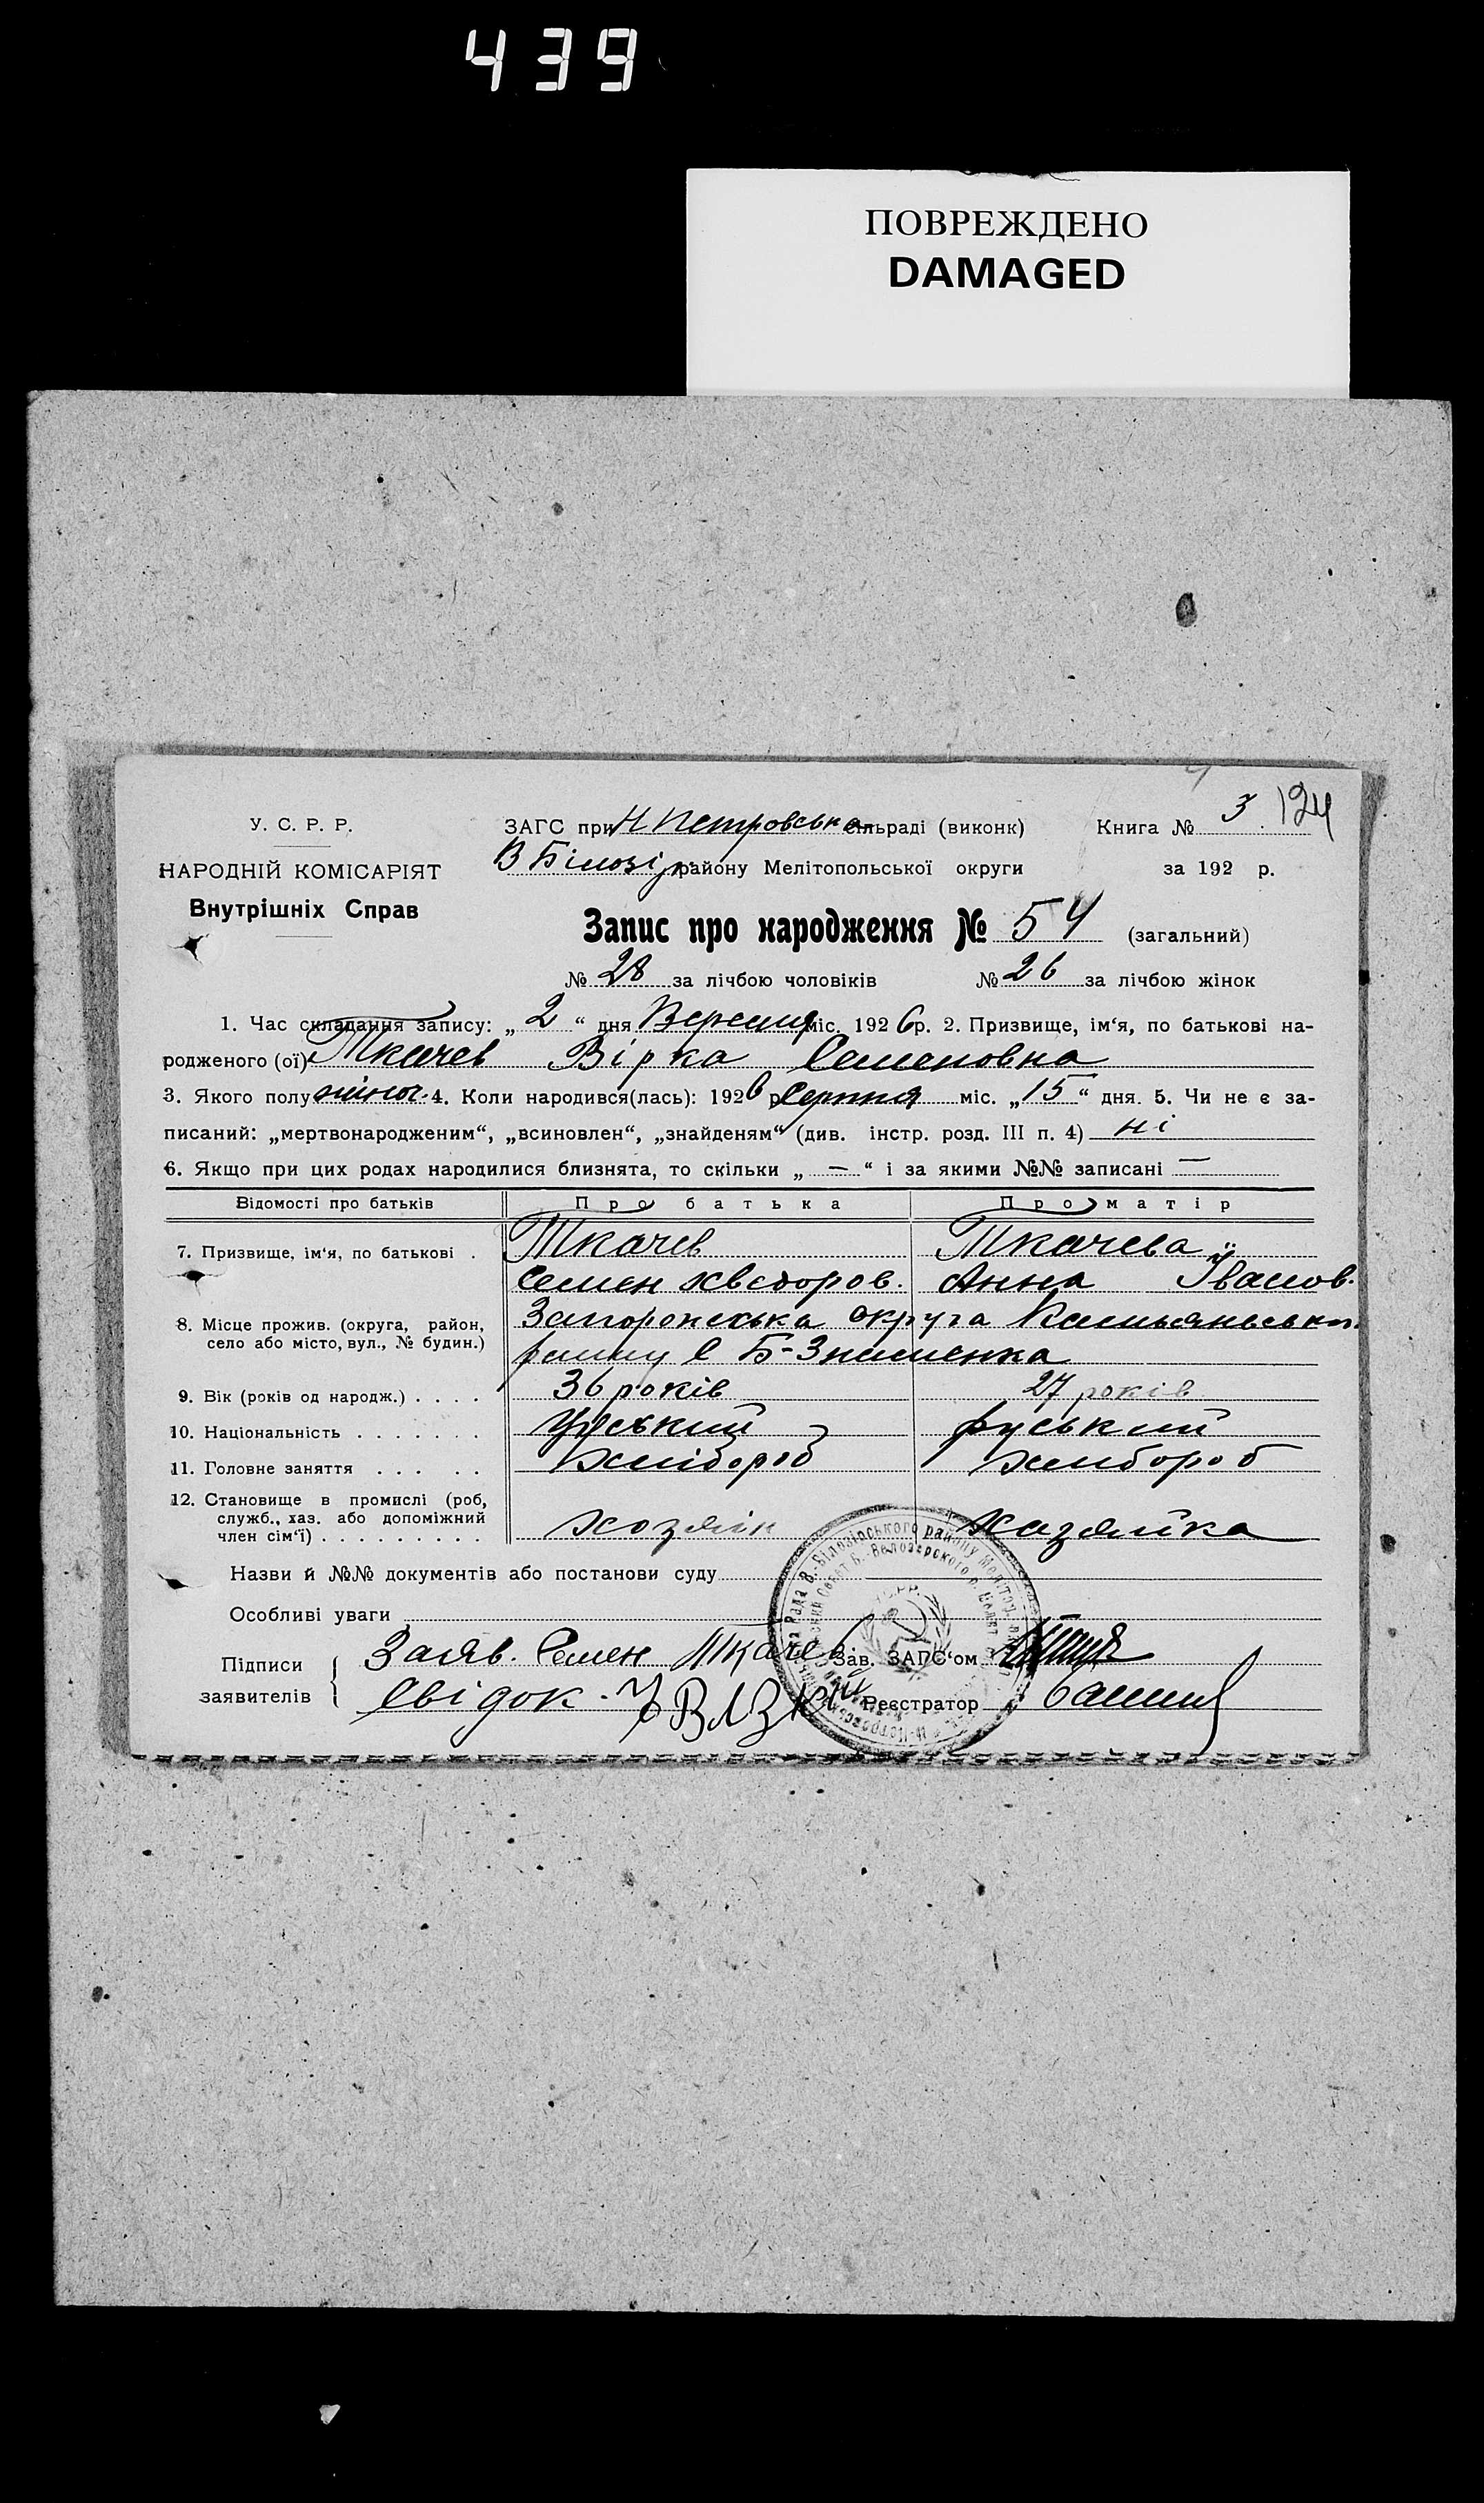 439
ПОВРЕЖДЕНО
DAMAGED
У. С. Р. Р.
ЗАГС при Н Петровськ сільраді (виконк) Книга № 3. 124
НАРОДНІЙ КОМІСАРІЯТ
В Білозір району Мелітопольської округи за 192 р.
Внутрішніх Справ
Запис про народження № 54 (загальний)
№ 28 за лічбою чоловіків № 26 за лічбою жінок
1. Час складання запису: „ 2 “ дня Вересня міс. 1926 р. 2. Призвище, ім‘я, по батькові на-
родженого (ої) Ткачев Вірка Семеновна
3. Якого полу жіноч. 4. Коли народився(лась): 1926 р. Серпня міс. „ 15 “ дня. 5. Чи не є за-
писаний: „мертвонародженим“, „всиновлен“, „знайденям“ (див. інстр. розд. III п. 4) ні
6. Якщо при цих родах народилися близнята, то скільки „ — “ і за якими №№ записані —
Відомості про батьків Про батька Про матір
7. Призвище, ім‘я, по батькові . Ткачев Ткачева
Семен Хведоров. Анна Іванов.
8. Місце прожив. (округа, район, село або місто, вул., № будин.) Запорожська округа Камьянського
району с Б-Знаменка
9. Вік (років од народж.) . . . . 36 років 27 років
10. Національність . . . . . . . руський руський
11. Головне заняття . . . . . хлібороб хлібороб
12. Становище в промислі (роб,
служб., хаз. або допоміжний
член сім‘ї) . . . . . . . . . хозяін хазяйка
Назви й №№ документів або постанови суду
Особливі уваги
Підписи заявителів
Заяв. Семен Ткачев Зав. ЗАГС‘ом
Свідок. Реєстратор